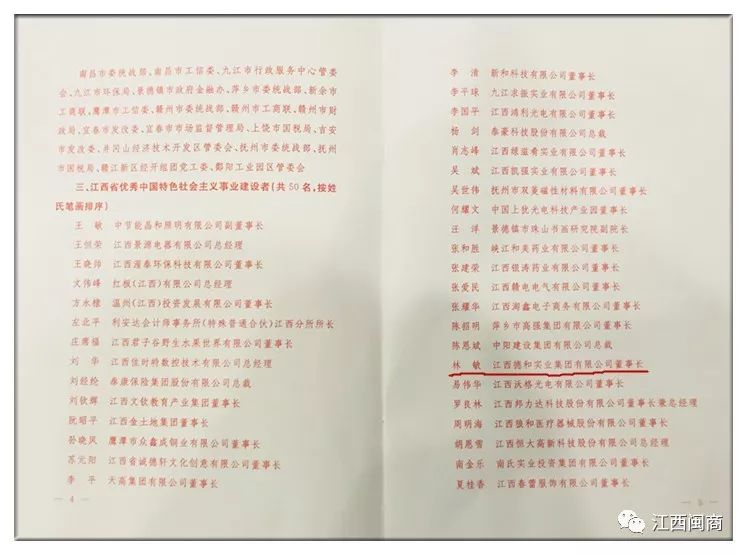 南昌市委统战部、南昌市工信委、九江市行政服务中心管委
会、九江市环保局、景德镇市政府金融办、萍乡市委统战部、新余市
工商联、鹰潭市工信委、赣州市委统战部、赣州市工商联、赣州市财
政局、宜春市发改委、宜春市市场监督管理局、上饶市国税局、吉安
市发改委、井冈山经济技术开发区管委会、抚州市委统战部、抚州
市国税局、赣江新区经开组团党工委、鄱阳工业园区管委会
三、江西省优秀中国特色社会主义事业建设者(共50名,按姓
氏笔画排序)
王 敏 中节能晶和照明有限公司副董事长
王恒荣 江西景源电器有限公司总经理
王晓帅 江西渥泰环保科技有限公司董事长
文伟峰 红板(江西)有限公司总经理
方永棣 温州(江西)投资发展有限公司董事长
左北平 利安达会计师事务所(特殊普通合伙)江西分所所长
庄席福 江西君子谷野生水果世界有限公司董事长
刘 华 江西佳时特数控技术有限公司总经理
刘经纶 泰康保险集团股份有限公司总裁
刘钦辉 江西文钦教育产业集团董事长
阮昭平 江西金土地集团董事长
孙晓凤 鹰潭市众鑫成铜业有限公司董事长
苏元阳 江西省诚德轩文化创意有限公司董事长
李 平 天高集团有限公司董事长
— 4 —
李 清 新和科技有限公司董事长
李平球 九江求振实业有限公司董事长
李国平 江西鸿利光电有限公司董事长
杨 剑 泰豪科技股份有限公司总裁
肖志峰 江西绿滋肴实业有限公司董事长
吴 斌 江西凯强实业有限公司董事长
吴世伟 抚州市双菱磁性材料有限公司董事长
何耀文 中国上犹光电科技产业园董事长
汪 洋 景德镇市珠山书画研究院副院长
张和胜 峡江和美药业有限公司董事长
张建荣 江西银涛药业有限公司董事长
张爱民 江西赣电电气有限公司董事长
张耀华 江西淘鑫电子商务有限公司董事长
陈招明 萍乡市高强集团有限公司董事长
陈恩斌 中阳建设集团有限公司总裁
林 敏 江西德和实业集团有限公司董事长
易伟华 江西沃格光电有限公司董事长
罗良林 江西邦力达科技股份有限公司董事长兼总经理
周明海 江西狼和医疗器械股份有限公司董事长
胡恩雪 江西恒大高新科技股份有限公司总经理
南金乐 南氏实业投资集团有限公司董事长
夏桂香 江西春蕾服饰有限公司董事长
— 5 —
江西闽商